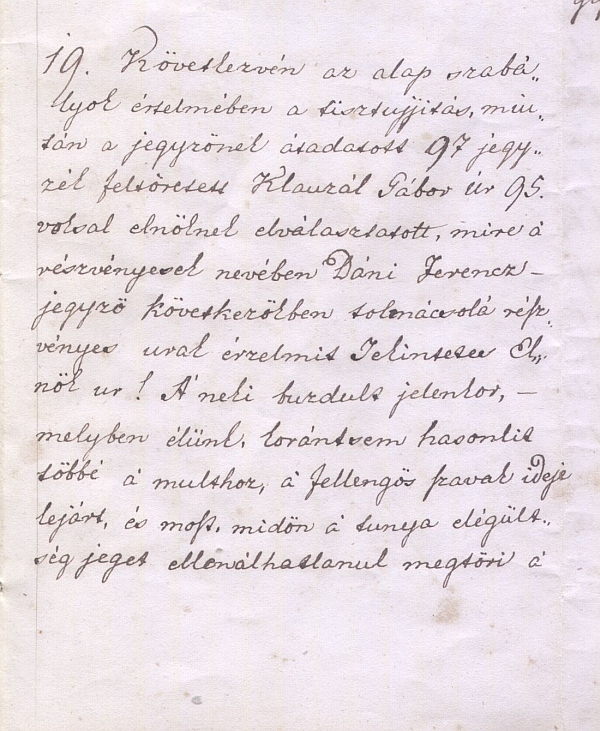 19. Következvén az alap szabá„
lyok értelmében a tisztujjitás, miu„
tán a jegyzönek átadatott 97 jegy„
zék feltöretett Klauzál Gábor úr 95.
voksal elnöknek elválasztatott, mire á
részvényesek nevében Dáni Ferencz –
jegyzö következökben tolmácsolá rész„
vényes urak érzelmit Tekintetes El„
nök ur! A' neki buzdult jelenkor, –
melyben élünk, korántsem hasonlit
többé á multhoz, á fellengös szavak ideje
lejárt, és most, midön á tunya elégült„
ség jeget ellenálhatlanul megtöri á